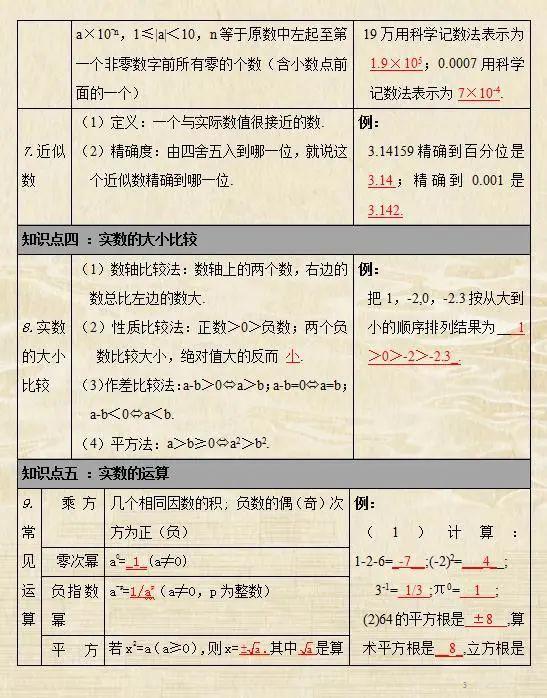 a×10⁻ⁿ，1≤|a|＜10，n等于原数中左起至第
一个非零数字前所有零的个数（含小数点前
面的一个）
19万用科学记数法表示为
1.9×10⁵；0.0007用科学
记数法表示为 7×10⁻⁴.
7.近似
数
（1）定义：一个与实际数值很接近的数.
（2）精确度：由四舍五入到哪一位，就说这
个近似数精确到哪一位.
例：
3.14159精确到百分位是
3.14；精确到 0.001 是
3.142.
知识点四 ：实数的大小比较
8.实数
的大小
比较
（1）数轴比较法：数轴上的两个数，右边的
数总比左边的数大.
（2）性质比较法：正数＞0＞负数；两个负
数比较大小，绝对值大的反而 小.
（3）作差比较法：a-b＞0⇔a＞b；a-b=0⇔a=b；
a-b＜0⇔a＜b.
（4）平方法：a＞b≥0⇔a²＞b².
例：
把 1，-2,0，-2.3 按从大到
小的顺序排列结果为 1
＞0＞-2＞-2.3 .
知识点五 ：实数的运算
9.
常
见
运
算
乘 方
几个相同因数的积; 负数的偶（奇）次
方为正（负）
零次幂
a⁰= 1 (a≠0)
负指数
幂
a⁻ᵖ=1/aᵖ（a≠0，p为整数）
平 方
若 x²=a（a≥0）,则 x=±√a.其中√a是算
例：
（1）计算：
1-2-6= -7 ;(-2)²= 4 ;
3⁻¹= 1/3 ;π⁰= 1 ;
(2)64的平方根是 ±8 ,算
术平方根是 8 ,立方根是
3